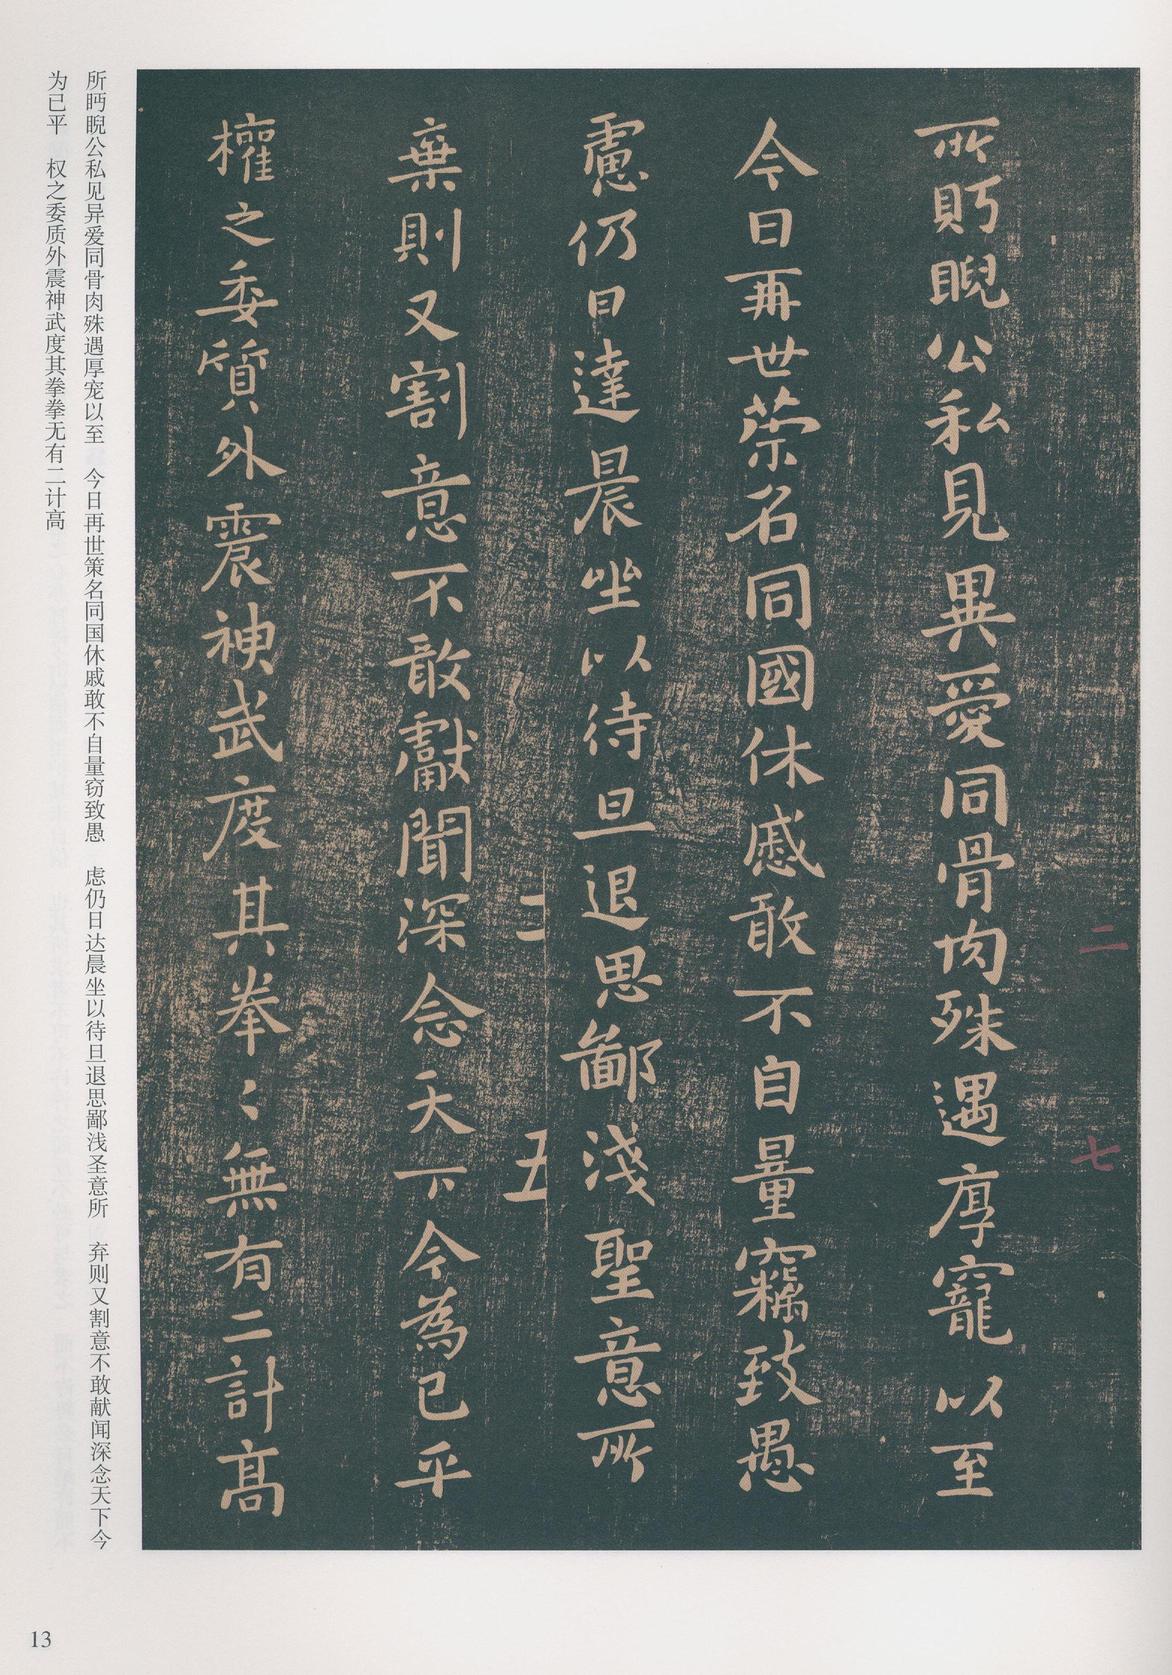 二 七
所眄睨公私見異愛同骨肉殊遇厚寵以至
今日再世榮名同國休慼敢不自量竊致愚
慮仍日達晨坐以待旦退思鄙淺聖意所
二 五
棄則又割意不敢獻聞深念天下今為已平
權之委質外震神武度其拳〻無有二計高
所眄睨公私见异爱同骨肉殊遇厚宠以至 今日再世策名同国休戚敢不自量窃致愚 虑仍日达晨坐以待旦退思鄙浅圣意所 弃则又割意不敢献闻深念天下今
为已平 权之委质外震神武度其拳拳无有二计高
13